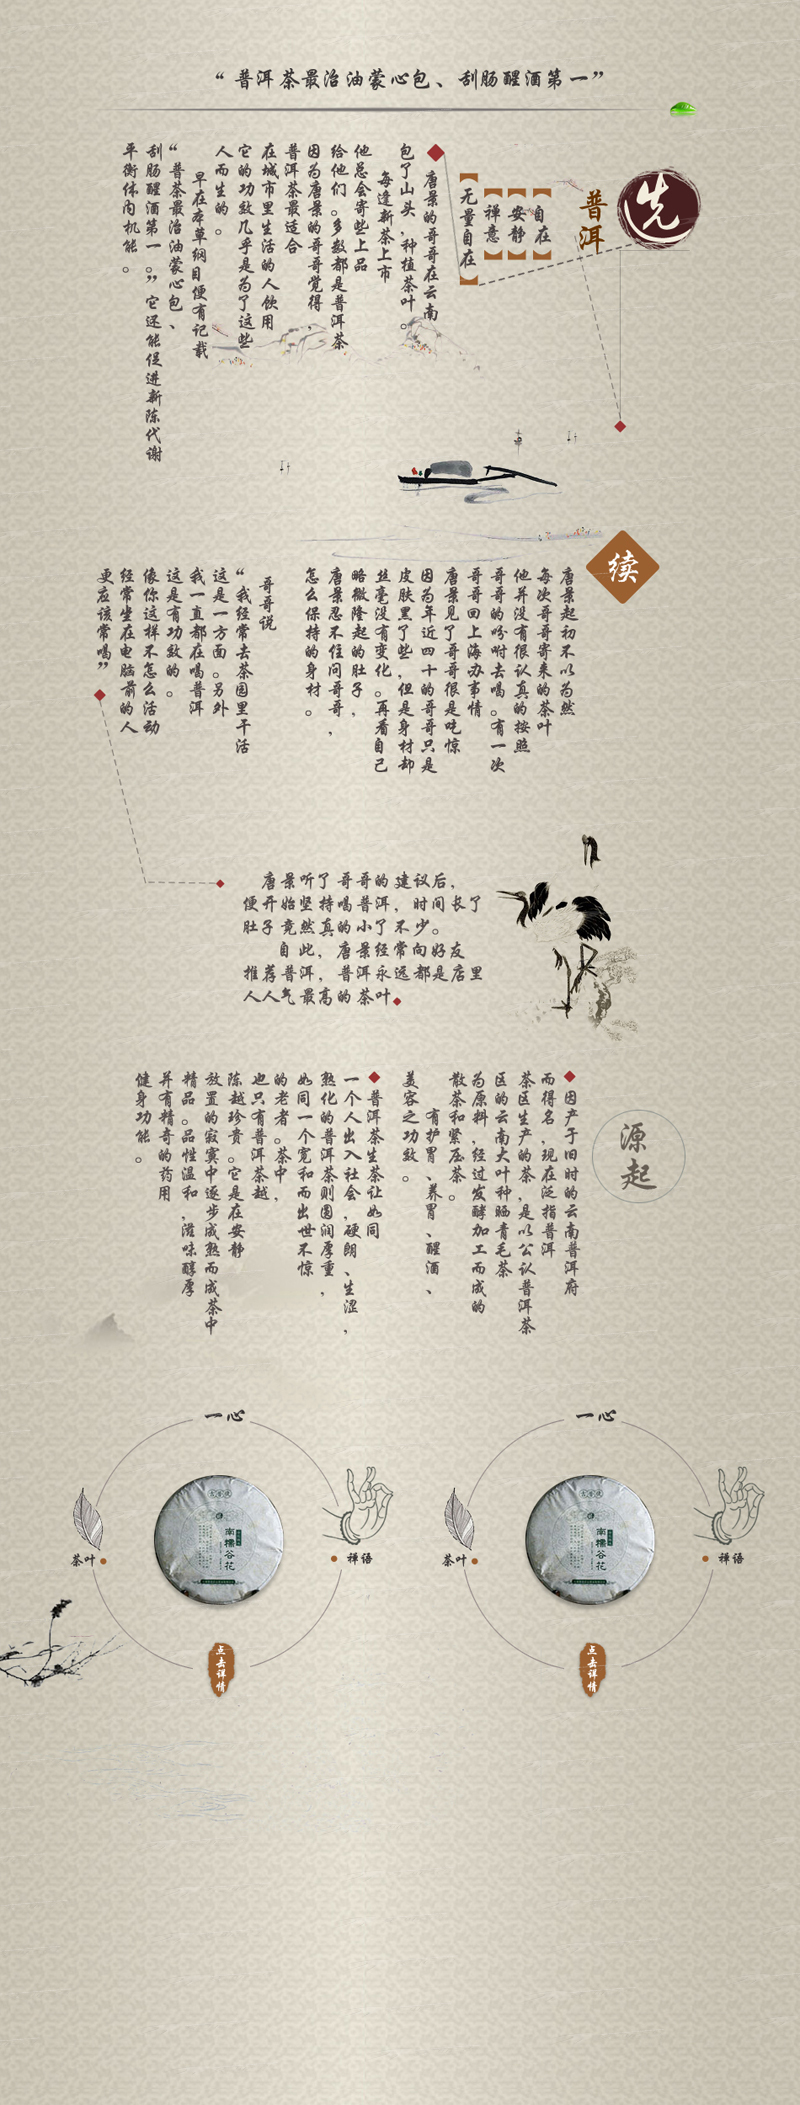 “普洱茶最治油蒙心包、刮肠醒酒第一”
先
普洱
【自在】
【安静】
【禅意】
【无量自在】
唐景的哥哥在云南
包了山头,种植茶叶。
每逢新茶上市
他总会寄些上品
给他们。多数都是普洱茶
因为唐景的哥哥觉得,
普洱茶最适合
在城市里生活的人饮用
它的功效几乎是为了这些
人而生的。
早在本草纲目便有记载
“普茶最治油蒙心包、
刮肠醒酒第一。”它还能促进新陈代谢
平衡体内机能。
续
唐景起初不以为然
每次哥哥寄来的茶叶
他并没有很认真的按照
哥哥的吩咐去喝。有一次
哥哥回上海办事情
唐景见了哥哥很是吃惊
因为年近四十的哥哥只是
皮肤黑了些,但是身材却
丝毫没有变化。再看自己
略微隆起的肚子,
唐景忍不住问哥哥,
怎么保持的身材。
哥哥说
“我经常去茶园里干活
这是一方面。另外
我一直都在喝普洱
这是有功效的。
像你这样不怎么活动
经常坐在电脑前的人
更应该常喝”
唐景听了哥哥的建议后,
便开始坚持喝普洱,时间长了
肚子竟然真的小了不少。
自此,唐景经常向好友
推荐普洱,普洱永远都是店里
人人气最高的茶叶
源起
因产于旧时的云南普洱府
而得名,现在泛指普洱
茶区生产的茶,是以公认普洱茶
区的云南大叶种晒青毛茶
为原料,经过发酵加工而成的
散茶和紧压茶。
有护胃、养胃、醒酒、
美容之功效。
普洱茶生茶让如同
一个人出入社会,硬朗、生涩,
熟化的普洱茶则圆润厚重,
如同一个宽和而出世不惊
的老者。茶中,
也只有普洱茶越
陈越珍贵。它是在安静
放置的寂寞中逐步成熟而成茶中
精品。品性温和,滋味醇厚
并有精奇的药用
健身功能。
一心
茶叶
禅语
南糯谷花
点去详情
一心
茶叶
禅语
南糯谷花
点去详情